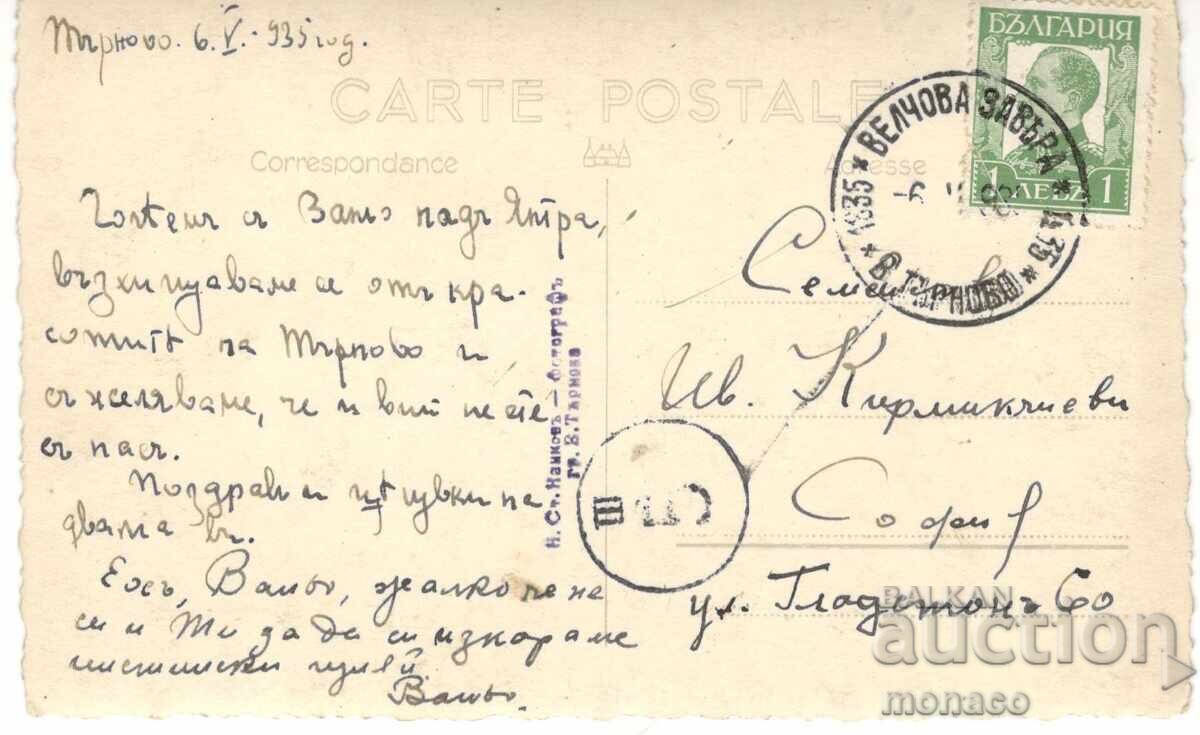 Търново. 6.V.-935 год.
БЪЛГАРИЯ
1 ЛЕВЪ 1
CARTE POSTALE
Correspondance
Adresse
* ВЕЛЧОВА ЗАВѢРА * 1835 * В. ТЪРНОВО * 1935
-6. V
съ Ваньо надъ Янтра,
възхищаваме се отъ кра-
сотитѣ на Търново и
съжеляваме, че и вий не сте
съ насъ.
Поздрави и цѣлувки на
двама ви.
Ваньо, жалко че не
си и Ти за да си изкараме
Ваньо.
Н. Ст. Нанковъ – Фотографъ
гр. В. Търново
III
Семейство
Ив. Кирмикчиеви
София
ул. Гладстонъ 60
BALKAN
auction
monaco